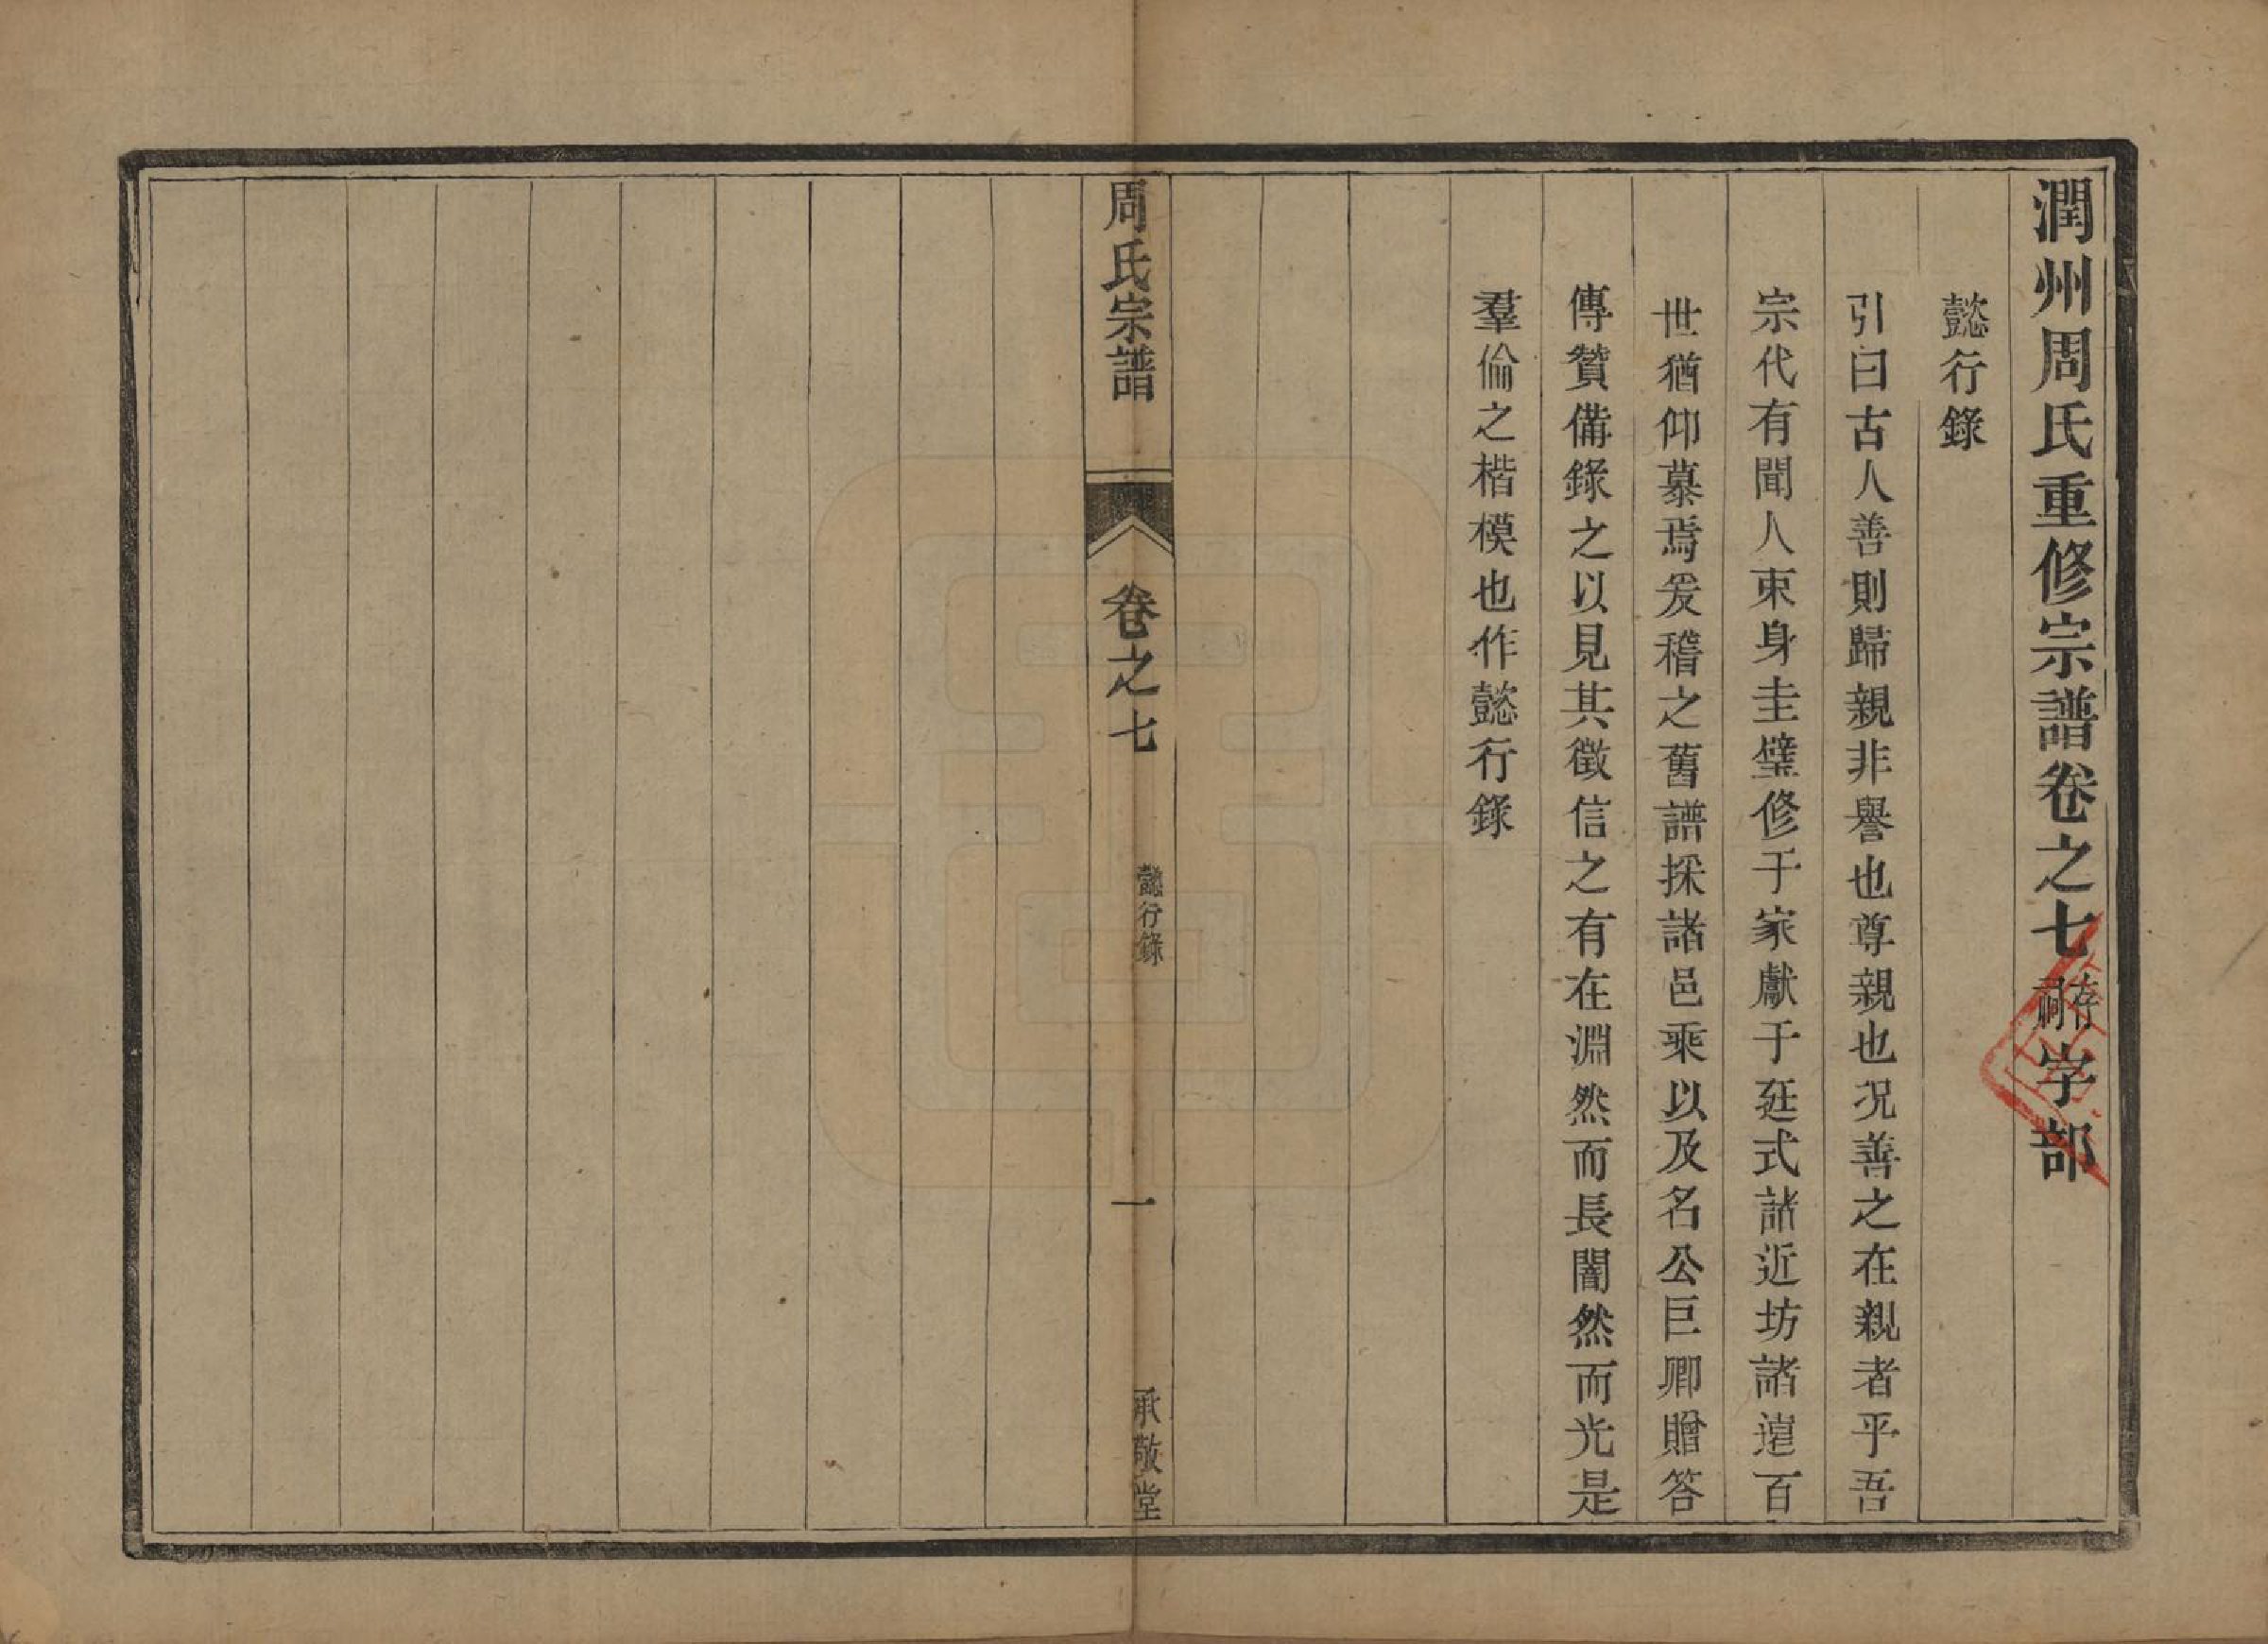 潤州周氏重修宗譜卷之七存祠字部
懿行錄
引曰古人善則歸親非譽也尊親也況善之在親者乎吾
宗代有聞人束身圭璧修于家獻于廷式諸近坊諸遠百
世猶仰慕焉爰稽之舊譜採諸邑乘以及名公巨卿贈答
傳贊備錄之以見其徵信之有在淵然而長闇然而光是
羣倫之楷模也作懿行錄
周氏宗譜
卷之七
懿行錄
一
承敬堂